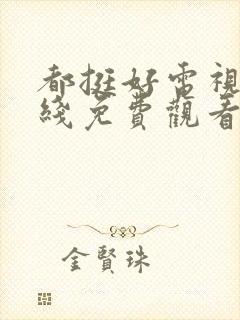 都挺好電視
綫免費觀看
金賢珠